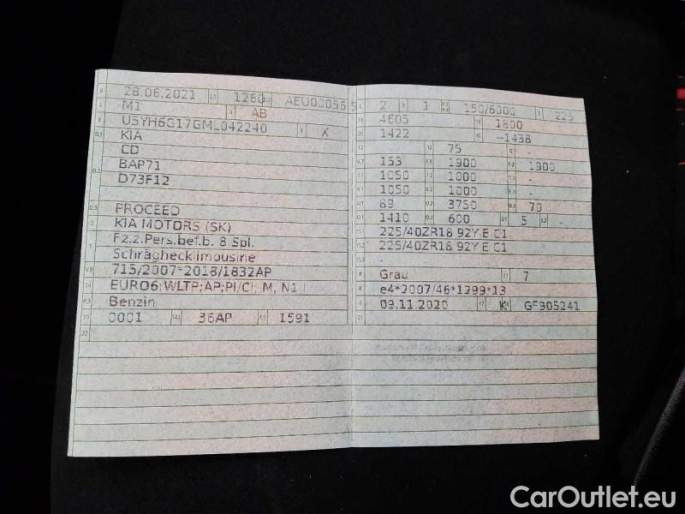 28.06.2021 1260 AEU00056 5
M1 AB
U5YH6G17GML042240 X
KIA
CD
BAP71
D73F12
PROCEED
KIA MOTORS (SK)
Fz.z.Pers.bef.b. 8 Spl.
Schräghecklimousine
715/2007*2018/1832AP
EURO6;WLTP;AP;PI/CI; M, N1 I
Benzin
0001 36AP 1591
2 1 150/6000 225
4605 1800
1422 -1438
75 -
153 1900 1900
1050 1000 -
1050 1000 -
89 3750 70
1410 600 5 -
225/40ZR18 92Y E C1
225/40ZR18 92Y E C1
-
Grau 7
e4*2007/46*1299*13
09.11.2020 K GF905241
CarOutlet.eu